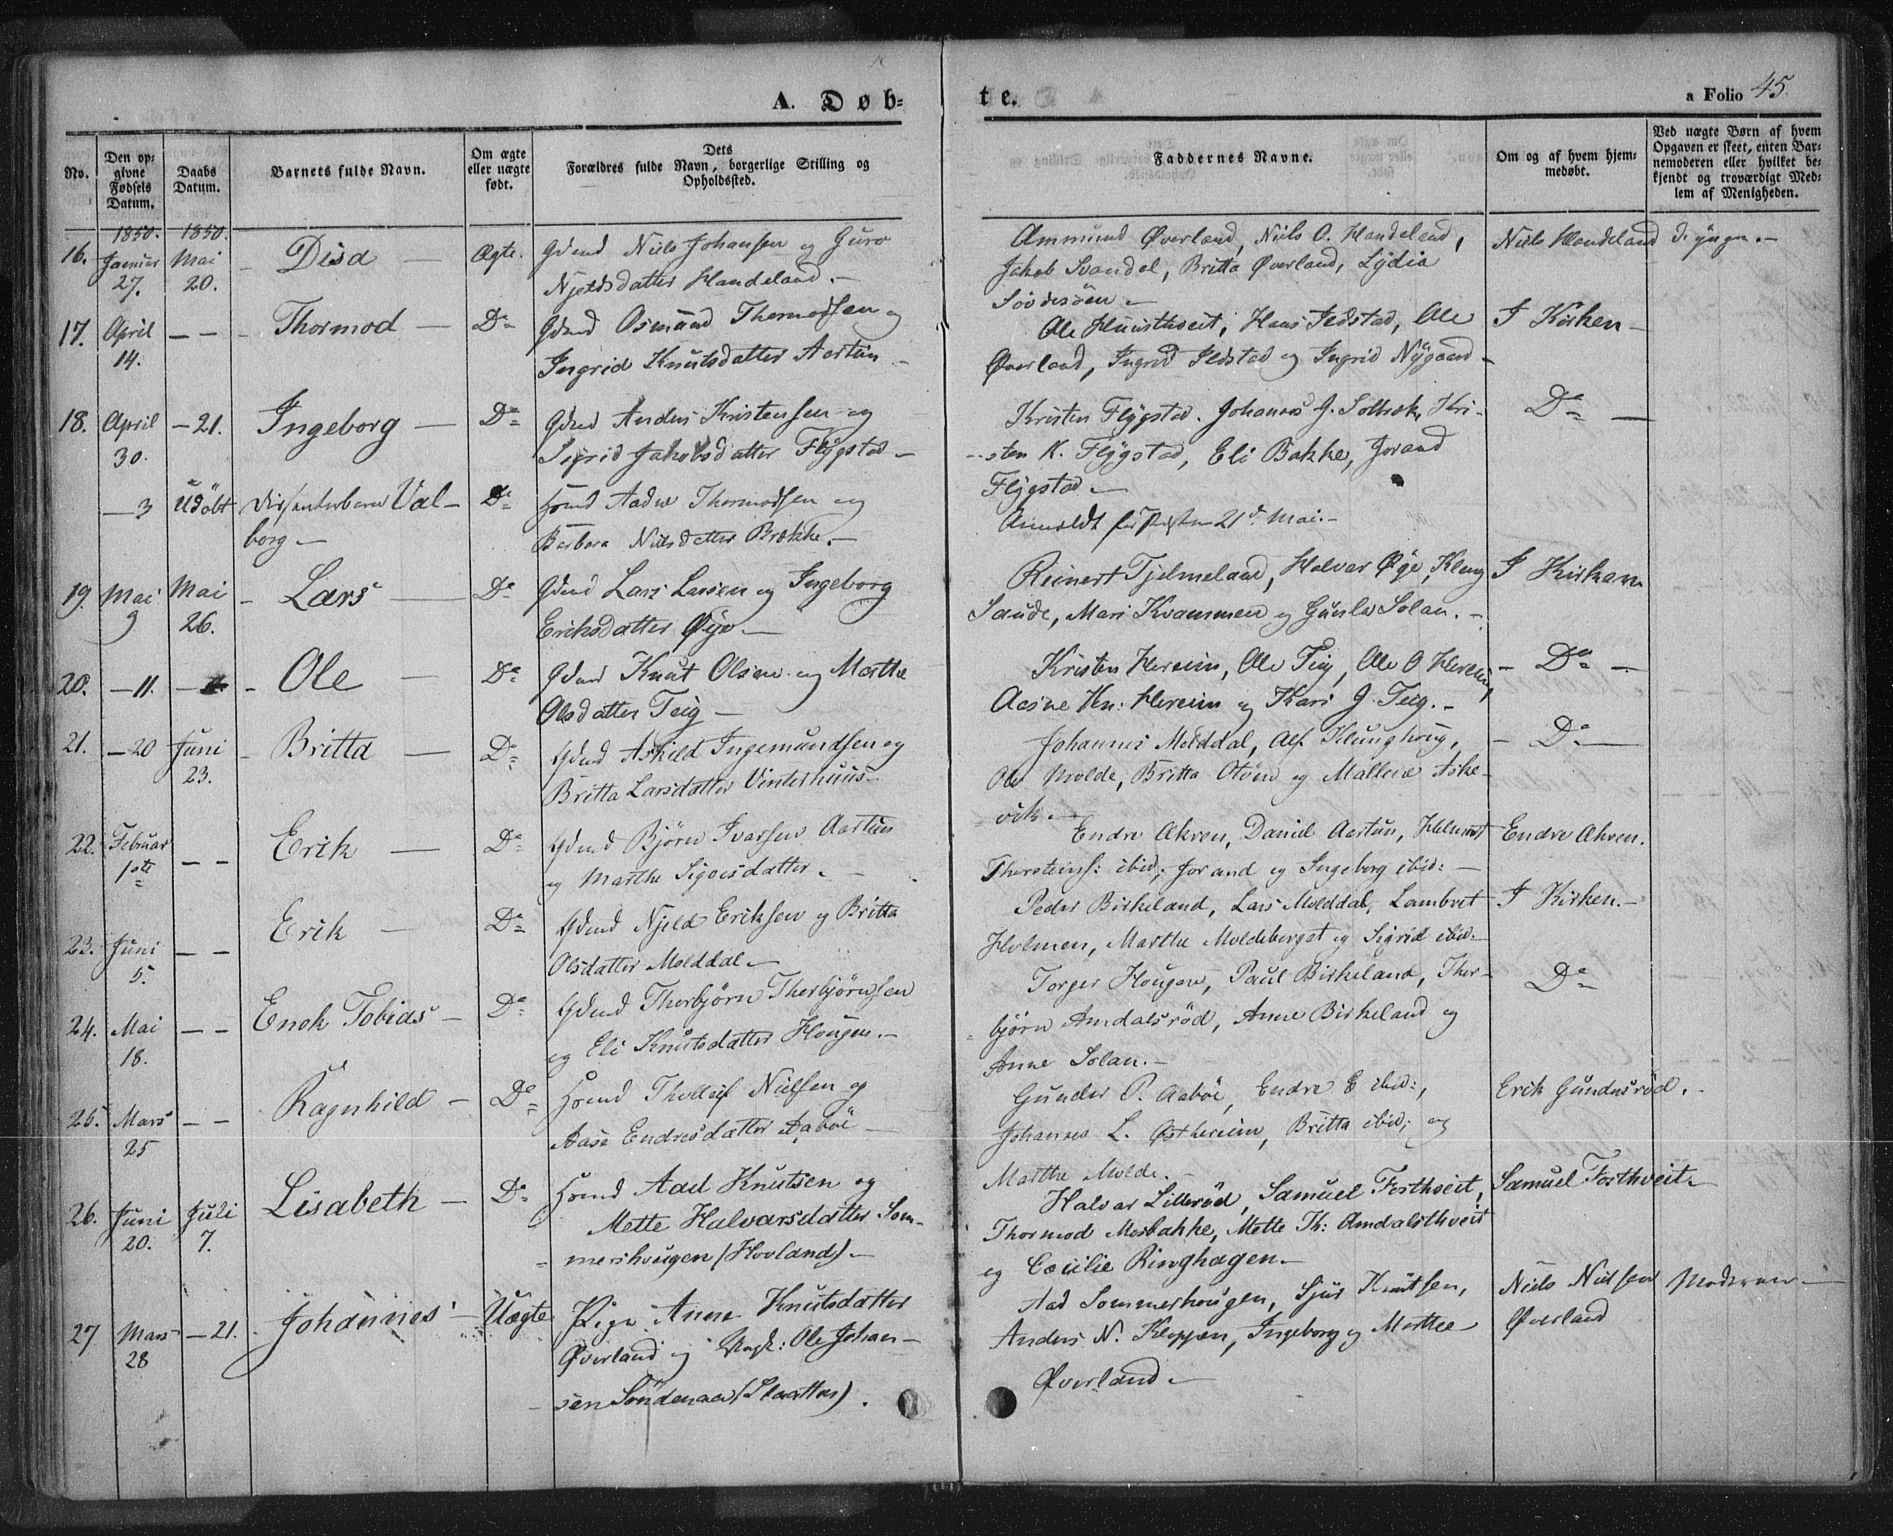 A. Døb-
te.
a Folio 45.
No.
Den opgivne Fødsels Datum.
Daabs Datum.
Barnets fulde Navn.
Om ægte eller uægte født.
Dets Forældres fulde Navn, borgerlige Stilling og Opholdssted.
Faddernes Navne.
Om og af hvem hjemmedøbt.
Ved uægte Børn af hvem Opgaven er skeet, enten Barnemoderen eller hvilket bekjendt og troværdigt Medlem af Menigheden.
1850. 1850.
16. Januar 27. Mai 20. Disa — Ægte. Gdmd Niels Johansen og Guro
Njeldsdatter Handeland.—
Ammund Øverland, Niels O. Handeland,
Jakob Svandal, Britta Øverland, Lydia
Søvdesöen.—
Niels Handeland
17. April 14. — — Thormod — Do Gdmd Osmund Thormodsen og
Ingrid Knutsdatter Aartun —
Ole Huusthveit, Hans Jedstad, Ole
Øverland, Ingrid Jedstad og Ingrid Nygaard —
I Kirken —
18. April 30. — 21. Ingeborg — Do Gdmd Anders Kristensen og
Sigrid Jakobsdatter Flygstad —
Kristen Flygstad. Johannes J. Solbrek, Kri-
sten K. Flygstad, Eli Bakke, Jorand
Flygstad —
Do —
— 3 Udöbt Dissenterbarn Val-
borg — Do Hsmd Aadne Thormodsen og
Barbara Nielsdatter Brække.—
Anmeldt for Præsten 21de Mai.—
19. Mai 9 Mai 26. Lars — Do Gdmd Lars Larsen og Ingeborg
Eriksdatter Øye —
Reinert Tjelmeland, Halvar Øye, Kleng
Saude, Mari Kvammen og Gunla Solan.—
I Kirken
20. — 11. — Ole — Do Gdmd Knut Olsen og Marthe
Olsdatter Teig —
Kristen Hereim, Ole Teig, Ole O. Hereim,
Aasne Kn: Hereim og Kari J. Teig.—
— Do —
21. — 20 Juni 23. Britta — Do Gdmd Askild Ingemundsen og
Britta Larsdatter Vinterhuus —
Johannes Molddal, Alf Klunghoug,
Ole Molde, Britta Otöen og Mallene Aske-
vik.—
— Do —
22. Februar 1ste — — Erik — Do Gdmd Bjørn Ivarsen Aartun
og Marthe Sjoersdatter.—
Endre Akren, Daniel Aartun, Helmert
Thorsteins: ibid; Jorand og Ingeborg ibid: —
Endre Akren.
23. Juni 5. — — Erik — Do Gdmd Njeld Eriksen og Britta
Olsdatter Molddal —
Peder Birkeland, Lars Molddal, Lambert
Holmen, Marthe Moldeberget og Sigrid ibid.—
I Kirken.—
24. Mai 18. — — Enok Tobias — Do Gdmd Thorbjörn Thorbjörnsen
og Eli Knutsdatter Hougen.—
Torger Hougen, Paul Birkeland, Thor-
björn Amdalsröd, Anne Birkeland og
Anne Solan.—
Do
25. Mars 25 — — Ragnhild — Do Hsmd Thollef Nielsen og
Aase Endresdatter Aaböe —
Gunder P. Aaböe, Endre E ibid:,
Johannes L. Østhereim, Britta ibid; og
Marthe Molde.—
Erik Gundersröd.
26. Juni 20. Juli 7. Lisabeth — Do Hsmd Aad Knutsen og
Mette Halvarsdatter Som-
mershougen (Hovland) —
Halvar Lilleröd, Samuel Forthveit,
Thormod Mosbakke, Mette Th: Amdalsthveit
og Cecilie Ringhagen —
Samuel Forthveit —
27 Mars 28 — 21. Johannes — Uægte Pige Anne Knutsdatter
Øverland og Ungk: Ole Johan-
sen Söndenaa (Slaattes).
Aad Sommerhougen, Sjur Knutsen,
Anders N. Kloppen, Ingeborg og Marthe
Øverland —
Niels Nielsen
Øverland
Moderen —